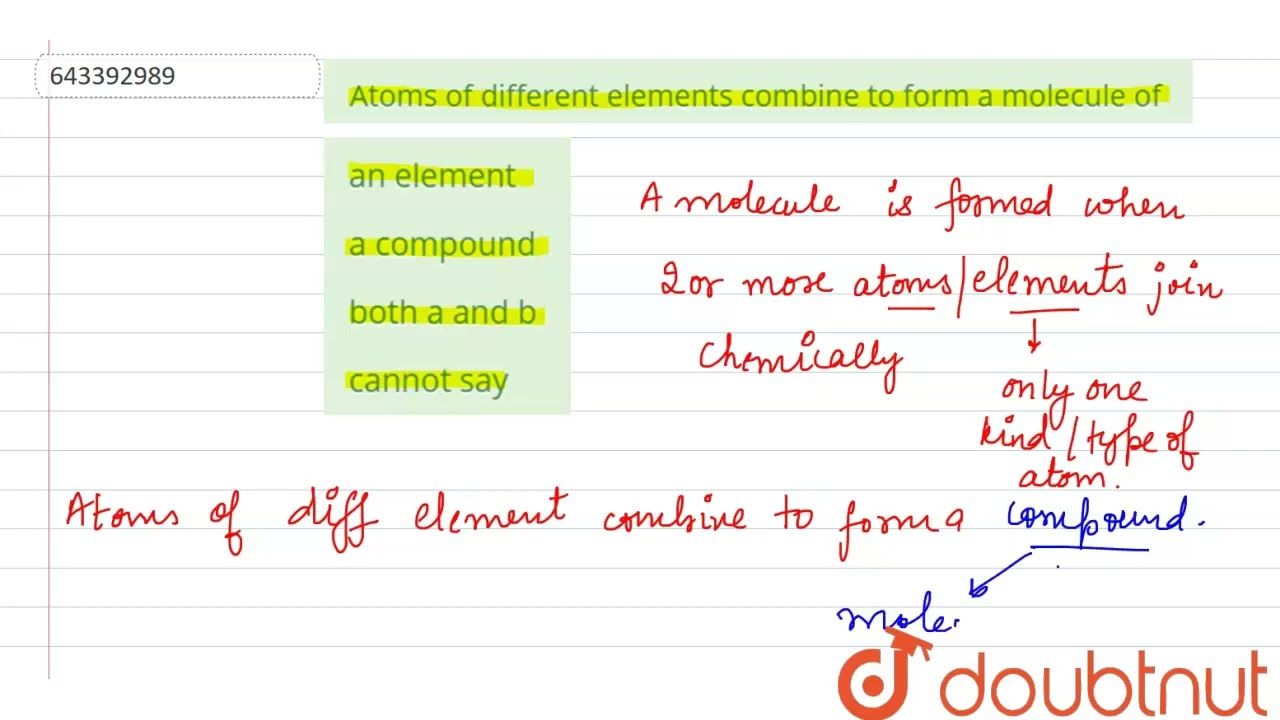 643392989
Atoms of different elements combine to form a molecule of
an element
a compound
both a and b
cannot say
A molecule is formed when
2 or more atoms/elements join
chemically
only one
kind/type of
atom.
Atoms of diff element combine to form a compound.
mole
doubtnut